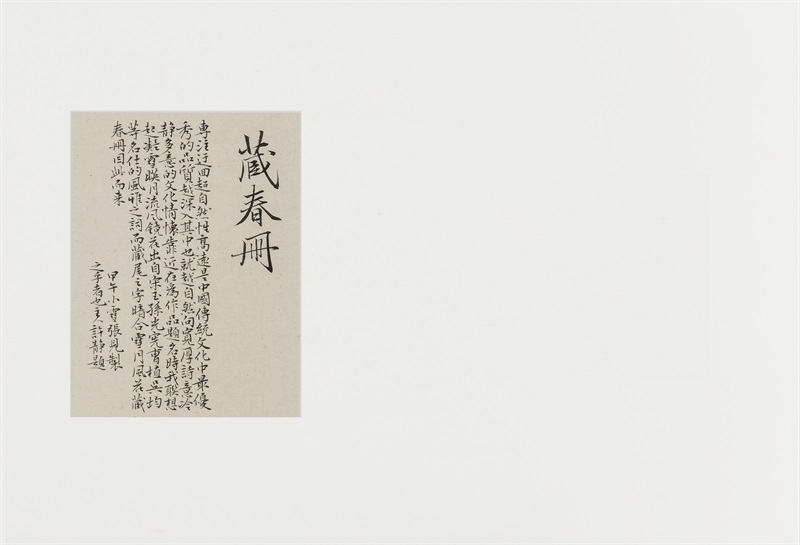 藏春冊
專注迂回超自然性高遠是中國傳統文化中最優
秀的品質越深入其中也就越自然向寬厚詩意冷
靜多意的文化情懷靠近在為作品題名時我聯想
起凝雪映月流風鏡花出自宋玉孫光憲曹植吳均
等名仕的風雅之詞而藏尾之字晴合雪月風花藏
春冊因此而来
甲午小雪張見製
之乎者也主人許靜題